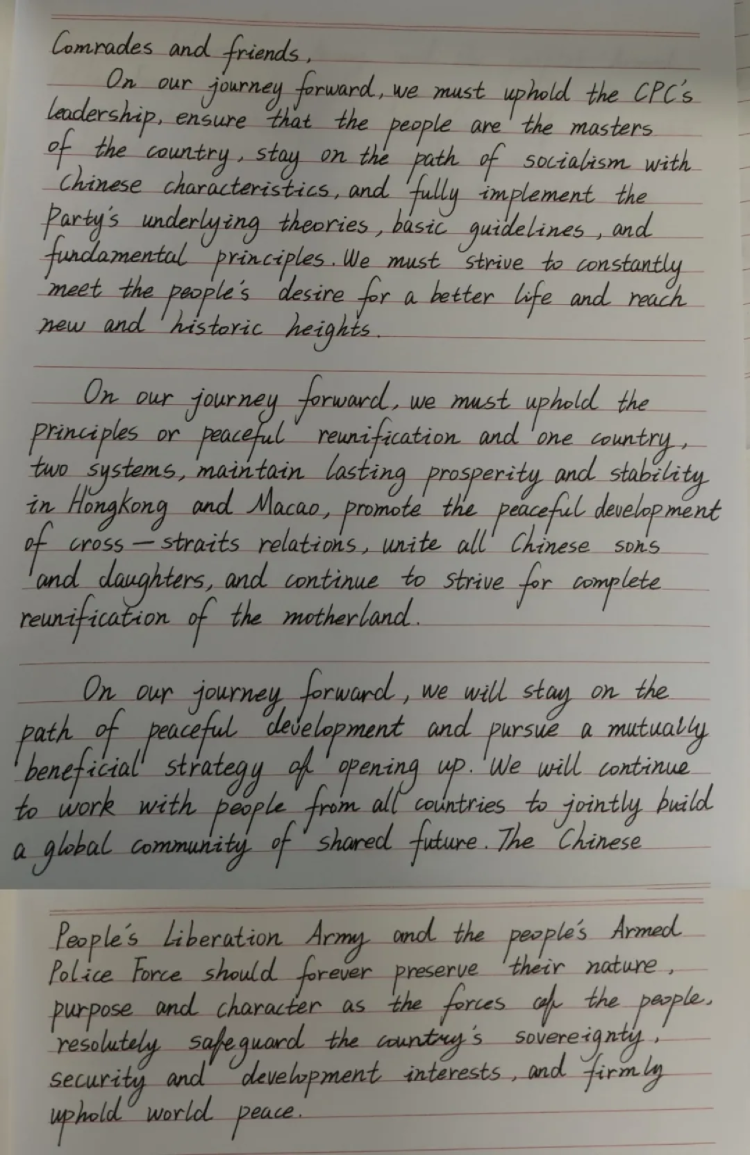 Comrades and friends,
On our journey forward, we must uphold the CPC's
leadership, ensure that the people are the masters
of the country, stay on the path of socialism with
Chinese characteristics, and fully implement the
Party's underlying theories, basic guidelines, and
fundamental principles. We must strive to constantly
meet the people's desire for a better life and reach
new and historic heights.
On our journey forward, we must uphold the
principles or peaceful reunification and one country,
two systems, maintain lasting prosperity and stability
in Hongkong and Macao, promote the peaceful development
of cross-straits relations, unite all Chinese sons
and daughters, and continue to strive for complete
reunification of the motherland.
On our journey forward, we will stay on the
path of peaceful development and pursue a mutually
beneficial strategy of opening up. We will continue
to work with people from all countries to jointly build
a global community of shared future. The Chinese
People's Liberation Army and the people's Armed
Police Force should forever preserve their nature,
purpose and character as the forces of the people,
resolutely safeguard the country's sovereignty,
security and development interests, and firmly
uphold world peace.